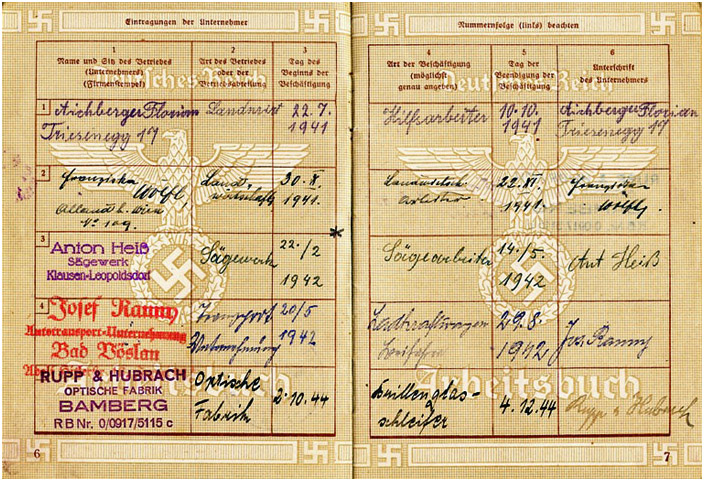 Eintragungen der Unternehmer
1
Name und Sitz des Betriebes
(Unternehmers)
(Firmenstempel)
2
Art des Betriebes
oder der
Betriebsabteilung
3
Tag des
Beginns der
Beschäftigung
Deutsches Reich
1 Aichberger Florian Landwirt 22.7.
Triesenegg 17 1941
2 Franziska Wölfl, Land- 30. XI.
wirtschaft 1941.
Alland b. Wien
No 109.
3 Anton Heiß Sägewerk 22./2
Sägewerk
Klausen-Leopoldsdorf 1942
4 Josef Ranny Transport 20/5
Autotransport-Unternehmung Unternehmung 1942
Bad Vöslau
RUPP & HUBRACH Optische
OPTISCHE FABRIK Fabrik 2.10.44
BAMBERG
RB Nr. 0/0917/5115 c
6
Nummernfolge (links) beachten
4
Art der Beschäftigung
(möglichst
genau angeben)
5
Tag der
Beendigung der
Beschäftigung
6
Unterschrift
des Unternehmers
Deutsches Reich
Hilfsarbeiter 10.10. Aichberger Florian
1941 Triesenegg 17
Landwirtsch. 22. XI. Franziska
arbeiter 1941. Wölfl,
Sägearbeiter 14./5. Ant Heiß
1942
Lastkraftwagen 29.8. Jos. Ranny
1942
Brillenglas-
schleifer 4.12.44 Rupp & Hubrach
Arbeitsbuch
7